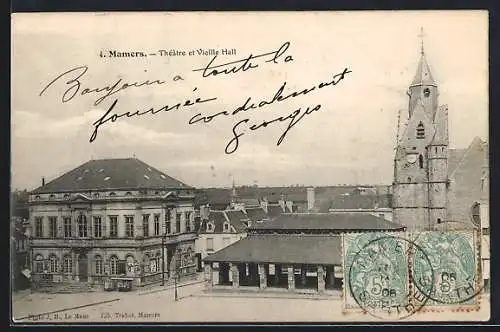 4. Mamers. — Théâtre et Vieille Hall
Bonjour à toute la
fournée cordialement
Georges
Photo J. B., Le Mans
125. Trubet, Mamers